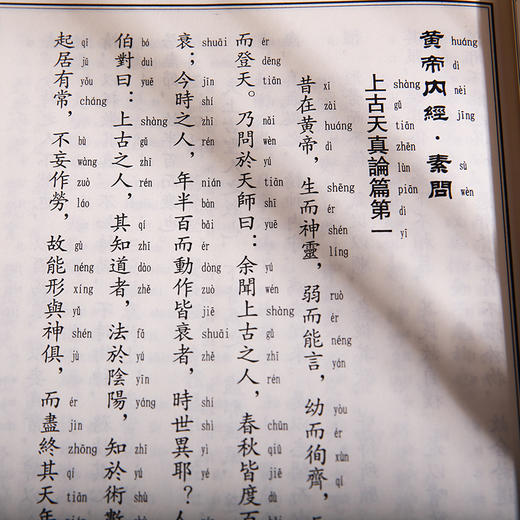 黄帝內經·素問
huáng dì nèi jīng sù wèn
上古天真論篇第一
shàng gǔ tiān zhēn lùn piān dì yī
昔在黄帝，生而神靈，弱而能言，幼而徇齊，
xī zài huáng dì shēng ér shén líng ruò ér néng yán yòu ér xùn qí
而登天。乃問於天師曰：余聞上古之人，春秋皆度百
ér dēng tiān nǎi wèn yú tiān shī yuē yú wén shàng gǔ zhī rén chūn qiū jiē dù
衰；今時之人，年半百而動作皆衰者，時世異耶？人
shuāi jīn shí zhī rén nián bàn bǎi ér dòng zuò jiē shuāi zhě shí shì yì yé
伯對曰：上古之人，其知道者，法於陰陽，知於術數
bó duì yuē shàng gǔ zhī rén qí zhī dào zhě fǎ yú yīn yáng zhī yú shù
起居有常，不妄作勞，故能形與神俱，而盡終其天年
qǐ jū yǒu cháng bù wàng zuò láo gù néng xíng yǔ shén jù ér jìn zhōng qí tiān